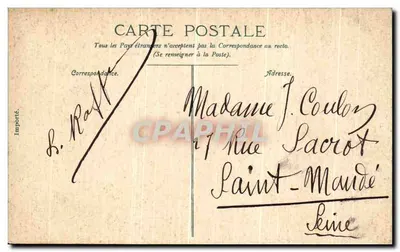 CARTE POSTALE
Tous les Pays étrangers n'acceptent pas la Correspondance au recto.
(Se renseigner à la Poste).
Correspondance.
Adresse.
Madame J. Coulon
27 Rue Sacrot
Saint-Mandé
Seine
Importé.
CPAPHIL